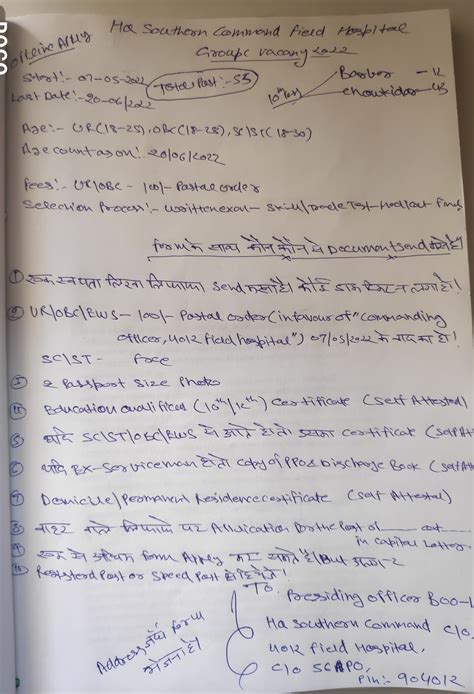 offline Army
Hq Southern Command Field Hospital
Groupc vacany 2022
Start:- 07-05-2022
Total Post:- 55
Last Date:- 20-06/2022
10th
Barber - 12
chowkidar - 43
Age:- UR(18-25), OBC(18-28), SC/ST(18-30)
Age count as on:- 20/06/2022
Fees:- UR/OBC - 100/- Postal order
Selection Process:- written exam - Skill/Trade Test - Medical - Final
form के साथ कौन कौन से Document send करने हैं
① एक स्वयता लिखा लिफाफा send करना है। कोई डाक टिकट न लगा हो।
② UR/OBC/EWS - 100/- Postal order (in favour of "Commanding
officer, 4012 field hospital") 07/05/2022 के बाद का हो।
SC/ST - free
2 Passport Size Photo
Education Qualified (10th/12th) Certificate (Self Attested)
⑤ यदि SC/ST/OBC/EWS से आते हो तो उसका certificate (self At
⑥ यदि Ex-Serviceman हो तो copy of PPO & Discharge Book (self Att
⑦ Domicile/Permanent Residence certificate (self Attested)
⑧ बाहर वाले लिफाफे पर Application for the Post of ____ cat ____
in Capital Letter.
⑨ एक से अधिक form Apply कर सकते है। But
⑩ Registered Post or Speed Post से ही
To
Presiding officer BOO-1
Address जहाँ form
भेजना है।
Hq Southern Command C/O
4012 Field Hospital,
C/O 56 APO,
Pin:- 904012